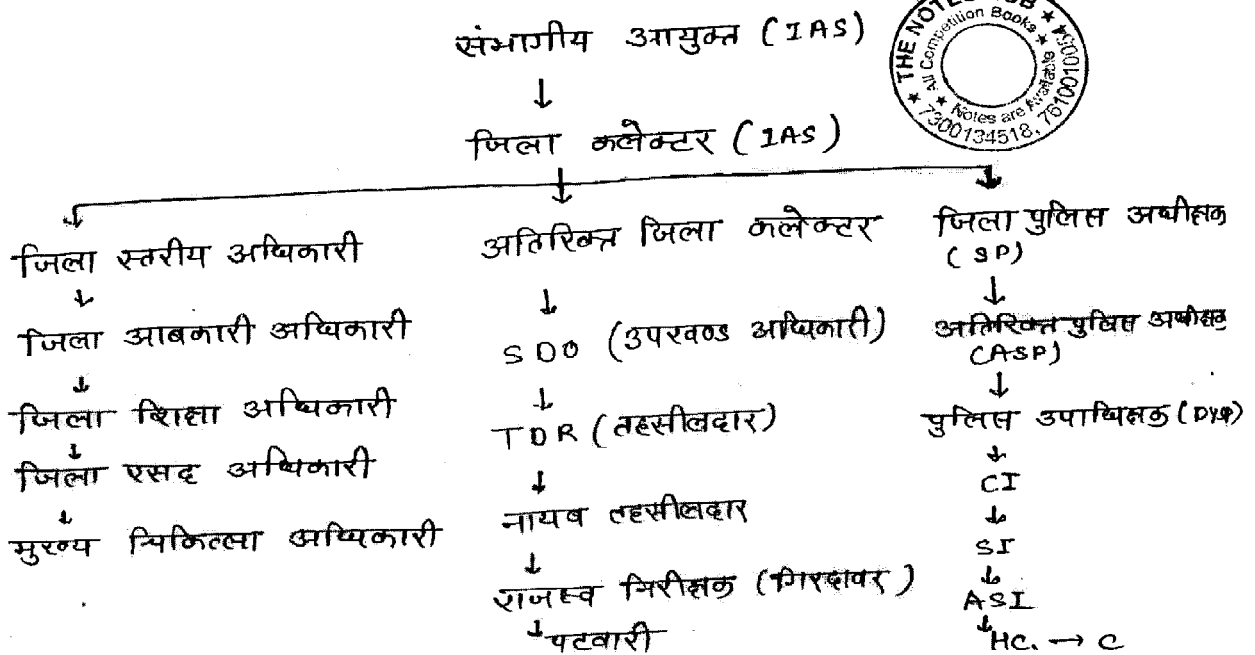 संभागीय आयुक्त (IAS)
↓
जिला कलेक्टर (IAS)
THE NOTES HUB
All Competition Books
Notes are Available
7300134518, 7610010054
जिला स्तरीय अधिकारी
↓
जिला आबकारी अधिकारी
↓
जिला शिक्षा अधिकारी
↓
जिला एसद अधिकारी
↓
मुख्य चिकित्सा अधिकारी
अतिरिक्त जिला कलेक्टर
↓
SDO (उपखण्ड अधिकारी)
↓
TDR (तहसीलदार)
↓
नायब तहसीलदार
↓
राजस्व निरीक्षक (गिरदावर)
↓ पटवारी
जिला पुलिस अधीक्षक
(SP)
↓
अतिरिक्त पुलिस अधीक्षक
(ASP)
↓
पुलिस उपाधिक्षक (DYSP)
↓
CI
↓
SI
↓
ASI
↓ HC. → C